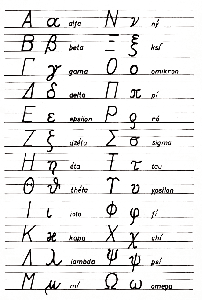 Α α alfa Ν ν ný
Β β beta Ξ ξ ksí
Γ γ gama Ο ο omikron
Δ δ delta Π π pí
Ε ε epsilon Ρ ρ ró
Ζ ζ dzéta Σ σ sigma
Η η éta Τ τ tau
Θ ϑ théta Υ υ ypsilon
Ι ι iota Φ φ fí
Κ ϰ kapa Χ χ chí
Λ λ lambda Ψ ψ psí
Μ μ mí Ω ω omega